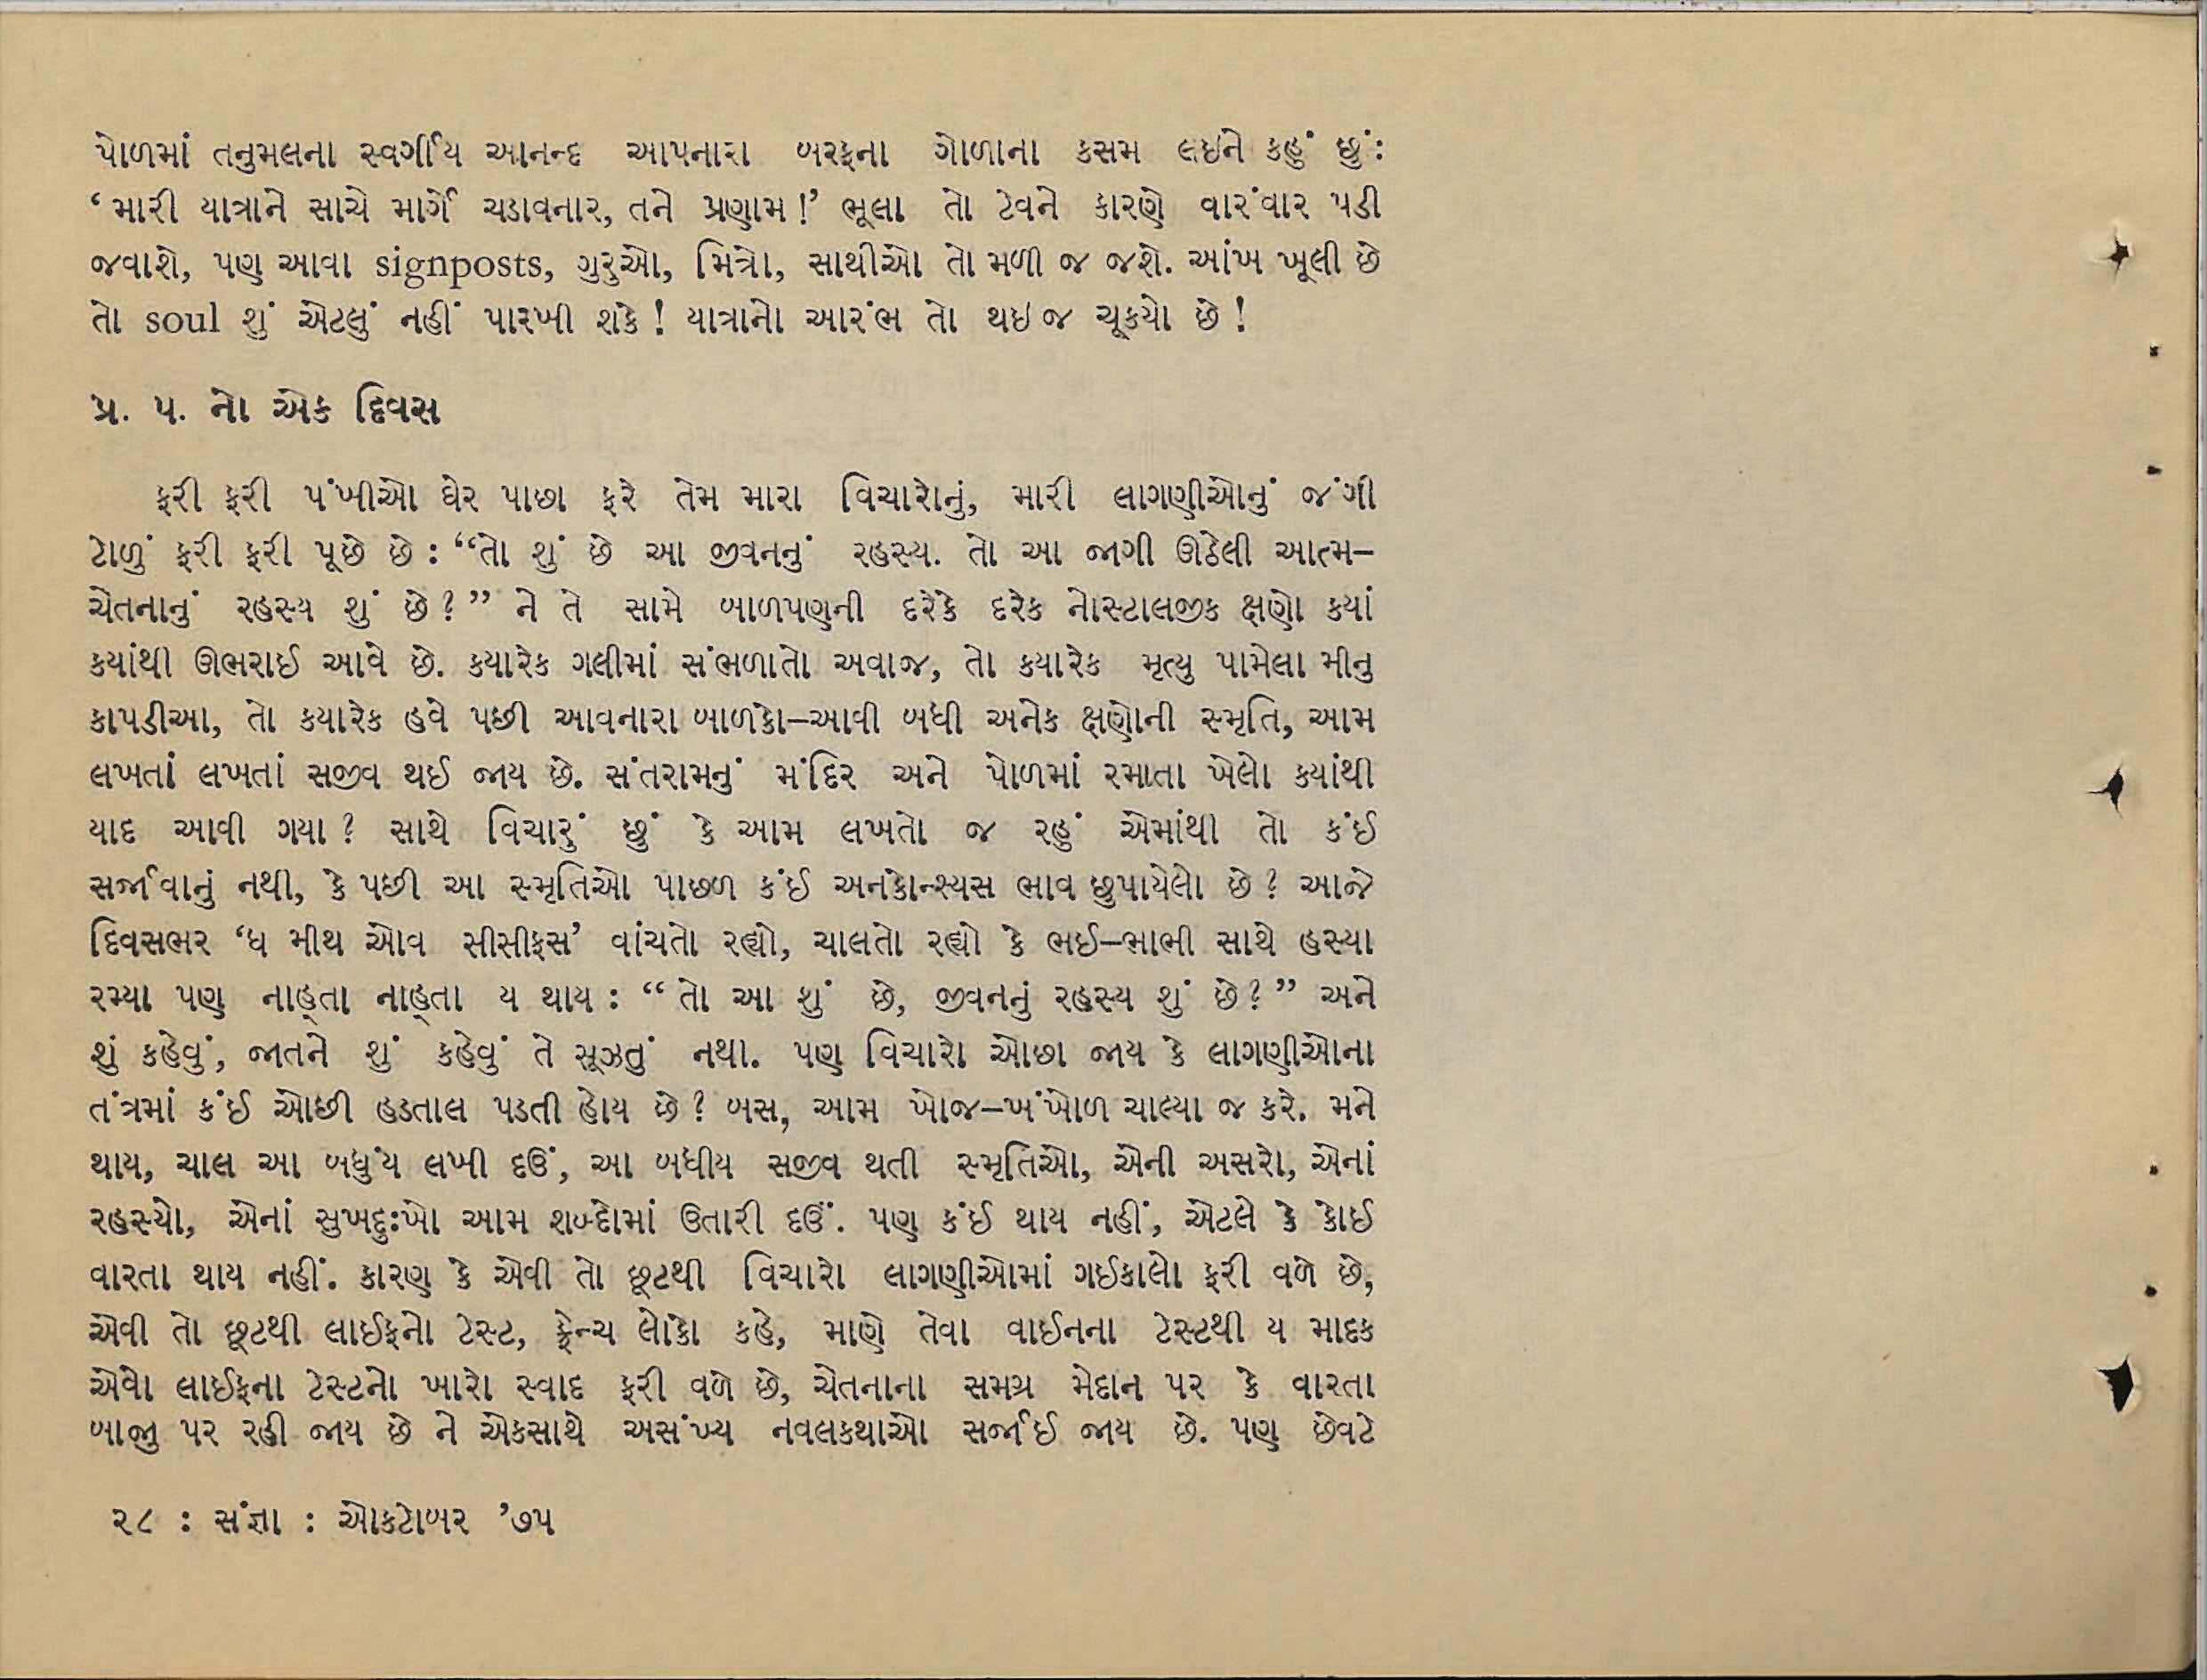 પોળમાં તનુમલના સ્વર્ગીય આનન્દ આપનારા બરફના ગોળાના કસમ લઇને કહું છું:
‘મારી યાત્રાને સાચે માર્ગે ચડાવનાર, તને પ્રણામ!’ ભૂલા તો ટેવને કારણે વારંવાર પડી
જવાશે, પણ આવા signposts, ગુરુઓ, મિત્રો, સાથીઓ તો મળી જ જશે. આંખ ખૂલી છે
તો soul શું એટલું નહીં પારખી શકે! યાત્રાનો આરંભ તો થઇ જ ચૂકયો છે!
પ્ર. પ. નો એક દિવસ
ફરી ફરી પંખીઓ ઘેર પાછા ફરે તેમ મારા વિચારોનું, મારી લાગણીઓનું જંગી
ટોળું ફરી ફરી પૂછે છે : “તો શું છે આ જીવનનું રહસ્ય. તો આ જાગી ઊઠેલી આત્મ–
ચેતનાનું રહસ્ય શું છે?” ને તે સામે બાળપણની દરેકે દરેક નોસ્ટાલજીક ક્ષણો કયાં
કયાંથી ઊભરાઈ આવે છે. કયારેક ગલીમાં સંભળાતો અવાજ, તો કયારેક મૃત્યુ પામેલા મીનુ
કાપડીઆ, તો કયારેક હવે પછી આવનારા બાળકો–આવી બધી અનેક ક્ષણોની સ્મૃતિ, આમ
લખતાં લખતાં સજીવ થઈ જાય છે. સંતરામનું મંદિર અને પોળમાં રમાતા ખેલો કયાંથી
યાદ આવી ગયા? સાથે વિચારું છું કે આમ લખતો જ રહું એમાંથી તો કંઈ
સર્જાવાનું નથી, કે પછી આ સ્મૃતિઓ પાછળ કંઈ અનકોન્શ્યસ ભાવ છુપાયેલો છે? આજે
દિવસભર ‘ધ મીથ ઓવ સીસીફસ’ વાંચતો રહ્યો, ચાલતો રહ્યો કે ભઈ–ભાભી સાથે હસ્યા
રમ્યા પણ નાહ્તા નાહ્તા ય થાય : “તો આ શું છે, જીવનનું રહસ્ય શું છે?” અને
શું કહેવું, જાતને શું કહેવું તે સૂઝતું નથી. પણ વિચારો ઓછા જાય કે લાગણીઓના
તંત્રમાં કંઈ ઓછી હડતાલ પડતી હોય છે? બસ, આમ ખોજ–ખંખોળ ચાલ્યા જ કરે. મને
થાય, ચાલ આ બધુંય લખી દઉં, આ બધીય સજીવ થતી સ્મૃતિઓ, એની અસરો, એનાં
રહસ્યો, એનાં સુખદુઃખો આમ શબ્દોમાં ઉતારી દઉં. પણ કંઈ થાય નહીં, એટલે કે કોઈ
વારતા થાય નહીં. કારણ કે એવી તો છૂટથી વિચારો લાગણીઓમાં ગઈકાલો ફરી વળે છે,
એવી તો છૂટથી લાઈફનો ટેસ્ટ, ફ્રેન્ચ લોકો કહે, માણે તેવા વાઈનના ટેસ્ટથી ય માદક
એવો લાઈફના ટેસ્ટનો ખારો સ્વાદ ફરી વળે છે, ચેતનાના સમગ્ર મેદાન પર કે વારતા
બાજુ પર રહી જાય છે ને એકસાથે અસંખ્ય નવલકથાઓ સર્જાઈ જાય છે. પણ છેવટે
૨૮ : સંજ્ઞા : ઓકટોબર ’૭૫